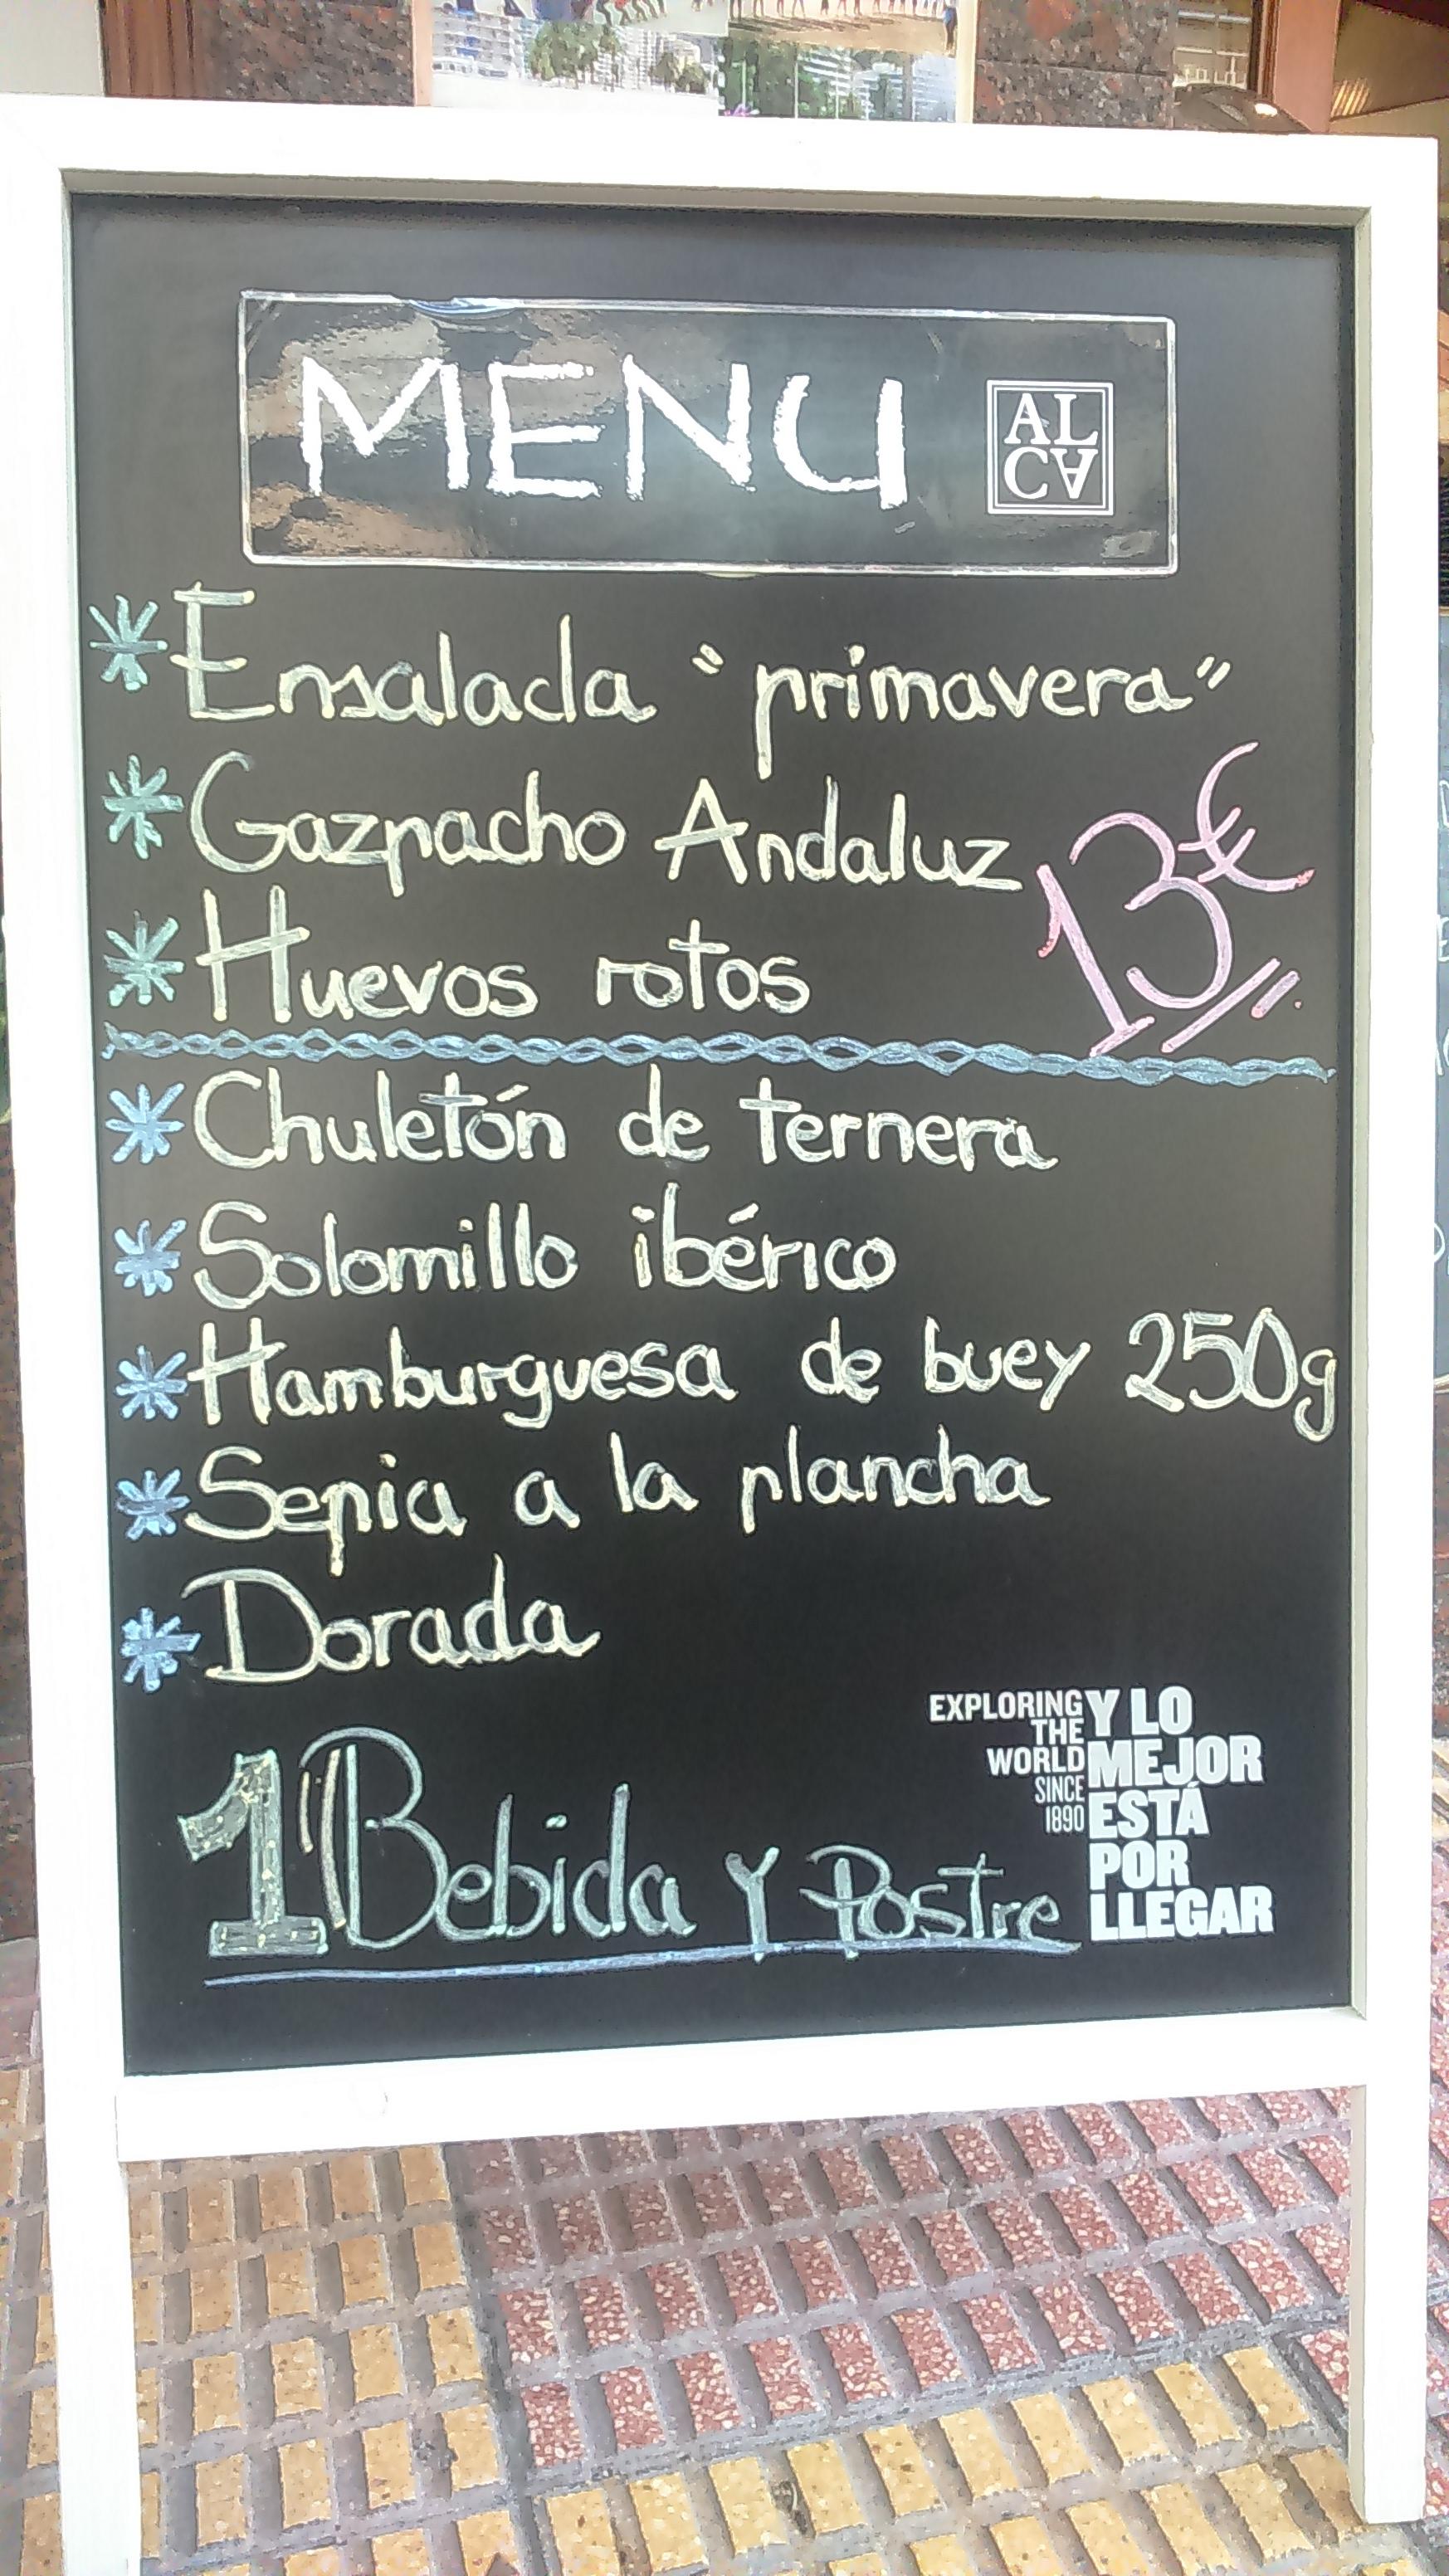 MENU
AL
CA
* Ensalada "primavera"
* Gazpacho Andaluz
13€
* Huevos rotos
* Chuletón de ternera
* Solomillo ibérico
* Hamburguesa de buey 250g
* Sepia a la plancha
* Dorada
1 Bebida Y Postre
EXPLORING
THE
WORLD
SINCE
1890
Y LO
MEJOR
ESTÁ
POR
LLEGAR